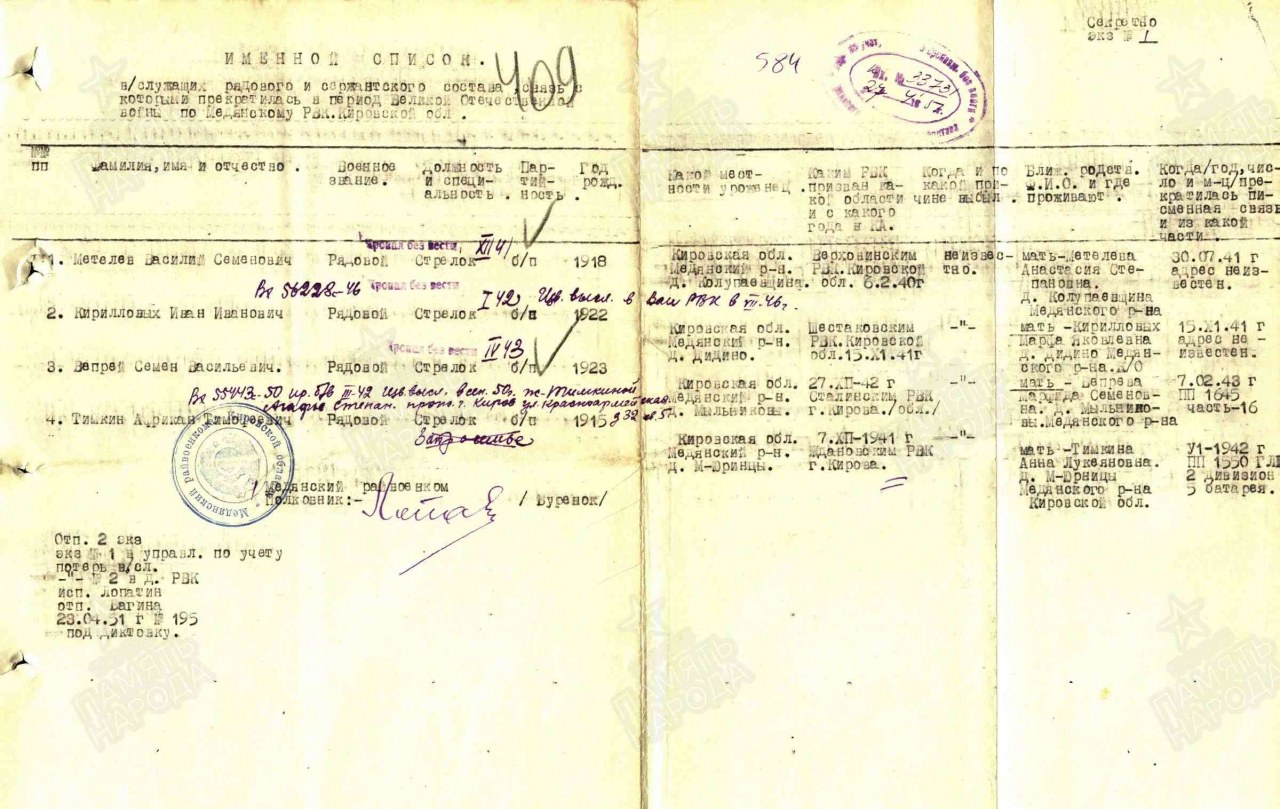 Секретно
экз № 1
ИМЕННОЙ СПИСОК.
409
584
в/служащих рядового и сержантского состава, связь с
которыми прекратилась в период Великой Отечественной
войны по Медянскому РВК.Кировской обл .
№№
пп
Фамилия, имя и отчество .
Военное
звание.
Должность
и специ-
альность .
Пар-
тий-
ность .
Год
рожд.
Какой мест-
ности уроженец .
Каким РВК
призван ка-
кой области
и с какого
года в КА.
Когда и по
какой при-
чине выбыл .
Ближ. родств.
Ф.И.О. и где
проживают .
Когда/год, чис-
ло и м-ц/пре-
кратилась пи-
сменная связь
и из какой
части .
пропал без вести XII 41
1. Метелев Василий Семенович Рядовой Стрелок б/п 1918
Кировская обл.
Медянский р-н.
Д. Колупаевщина.
Верховинским
РВК.Кировской
обл. 6.2.40г
неизвес-
тно.
мать-Метелева
Анастасия Сте-
пановна.
д. Колупаевщина
Медянского р-на
30.07.41 г
адрес неиз-
вестен.
Вх 56228-46
пропал без вести I 42, Изв. высл. в Ваш РВК в VII-46г.
2. Кирилловых Иван Иванович Рядовой Стрелок б/п 1922
Кировская обл.
Медянский р-н.
д. Дидино.
Шестаковским
РВК.Кировской
обл.15.Х1.41г
-"-
мать -Кирилловых
Марфа Яковлевна
д. Дидино Медян-
ского р-на.К/О
15.Х1.41 г
адрес не -
известен.
пропал без вести IV 43
3. Вепрей Семен Васильевич. Рядовой Стрелок б/п 1923
Кировская обл.
Медянский р-н.
д. Мыльниковы.
27.ХП-42 г
Сталинским РВК
г.Кирова./обл./
-"-
мать - Вепрева
Семенов-
на. д. Мыльнико-
вы.Медянского р-на
7.02.43 г
ПП 1645
часть-16
Вх 55443-50 пр. б/в III-42 Изв. высл. 50г. ж-Тимкиной
Степан. прож. г. Киров ул. Красноармейская
д 32
4. Тимкин Африкан Тимофеевич Рядовой Стрелок б/п 1915
Кировская обл.
Медянский р-н.
д. М-Юринцы.
7.ХП-1941 г
Ждановским РВК
г.Кирова.
-"-
мать -Тимкина
Анна Лукеяновна.
д. М-Юрницы
Медянского р-на
Кировской обл.
У1-1942 г
ПП 1550 ГЛП
2 дивизион
5 батарея.
Медянский райвоенком
Полковник:-
/ Буренок/
Медянский Райвоенкомат Кировской области
Отп. 2 экз
экз № 1 в управл. по учету
потерь в/сл.
-"- № 2 в д. РВК
исп. Лопатин
отп. Вагина
23.04.51 г № 195
под диктовку.
ПАМЯТЬ
НАРОДА